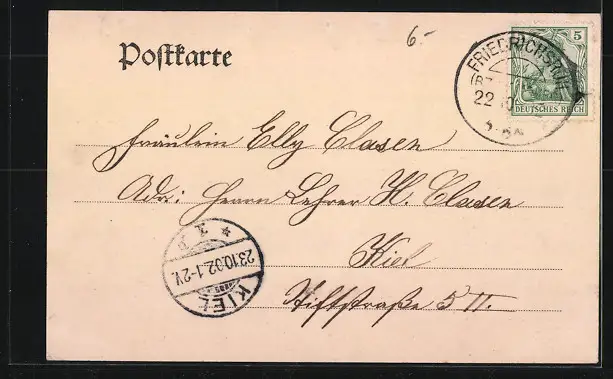 6.-
Postkarte
5
DEUTSCHES REICH
FRIEDRICHSRUH
22 10
Fräulein Elly Clasen
Adr: Herrn Lehrer H. Clasen
Kiel
Stiftstraße 5 II.
KIEL
23.10.02.1-2V.